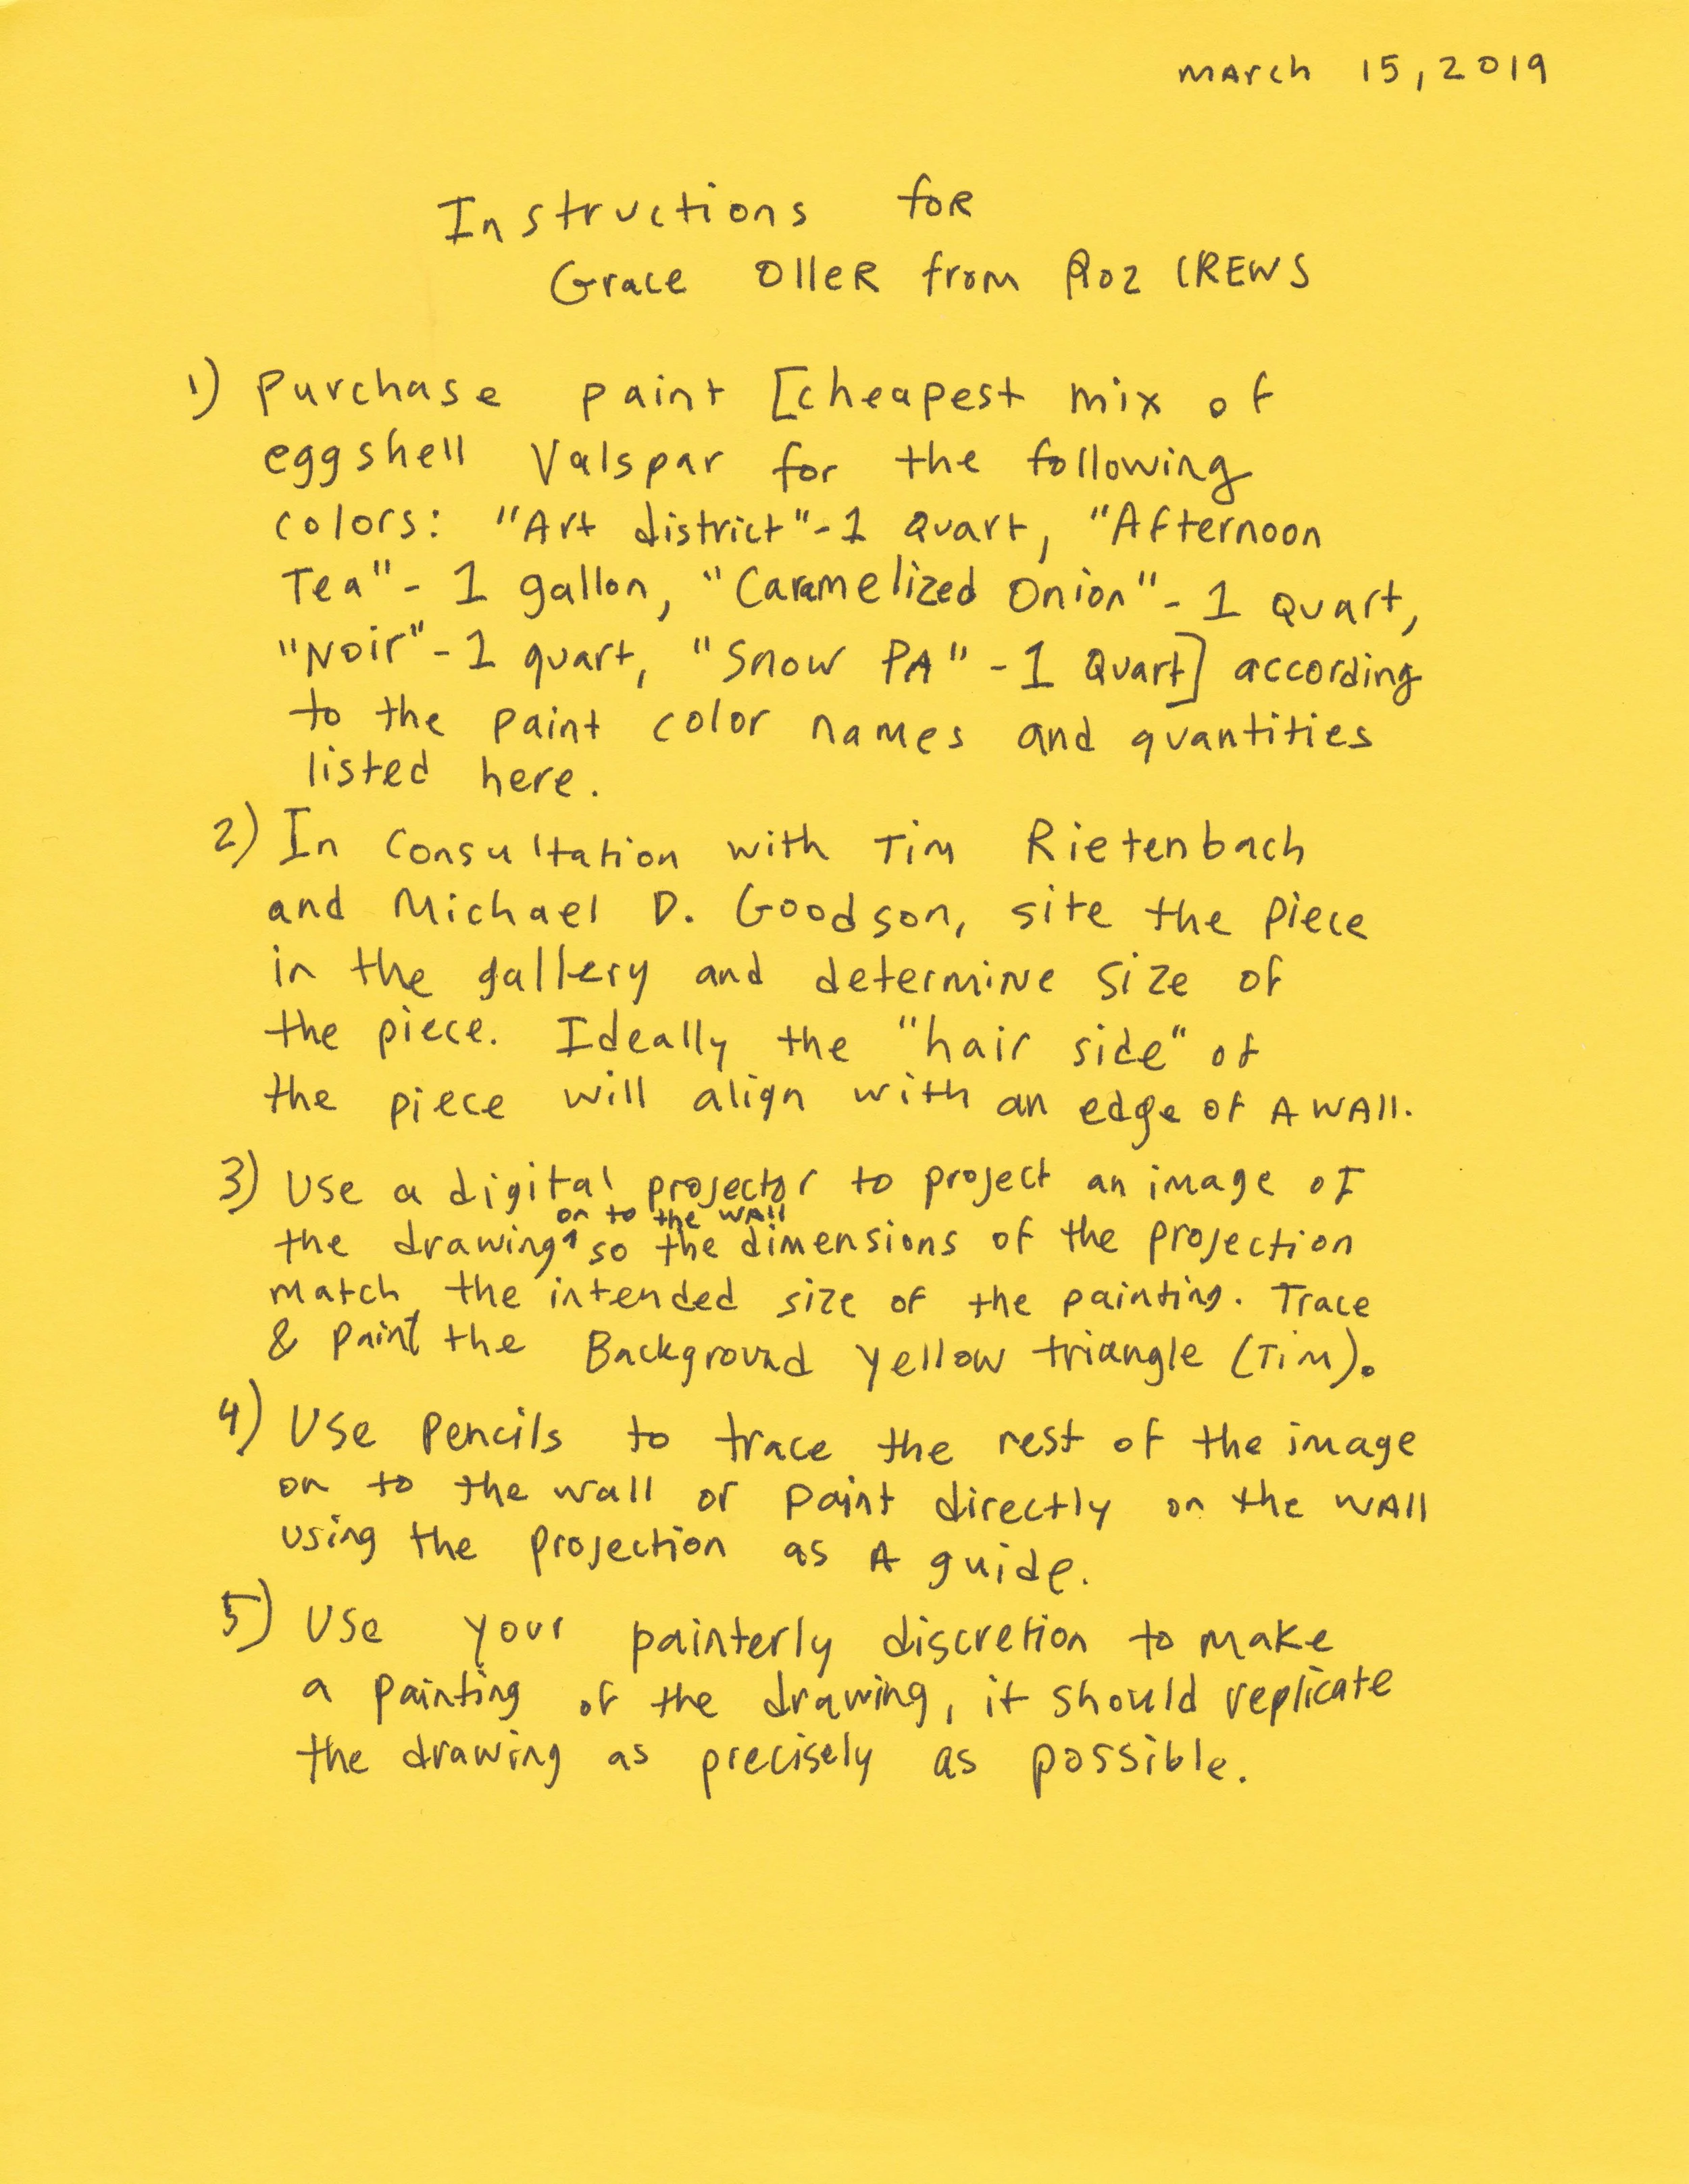 March 15, 2019
Instructions for
Grace Oller from Roz CREWS
1) Purchase paint [cheapest mix of
eggshell Valspar for the following
colors: "Art district"-1 Quart, "Afternoon
Tea"- 1 gallon, "Caramelized Onion"- 1 Quart,
"Noir"-1 quart, "Snow PA"-1 Quart] according
to the paint color names and quantities
listed here.
2) In Consultation with Tim Rietenbach
and Michael D. Goodson, site the piece
in the gallery and determine size of
the piece. Ideally the "hair side" of
the piece will align with an edge of A WAll.
3) Use a digital projector to project an image of
on to the WAll
the drawing^ so the dimensions of the projection
match the intended size of the painting. Trace
& paint the Background yellow triangle (Tim).
4) Use pencils to trace the rest of the image
on to the wall or paint directly on the WAll
using the projection as A guide.
5) Use your painterly discretion to make
a painting of the drawing, it should replicate
the drawing as precisely as possible.